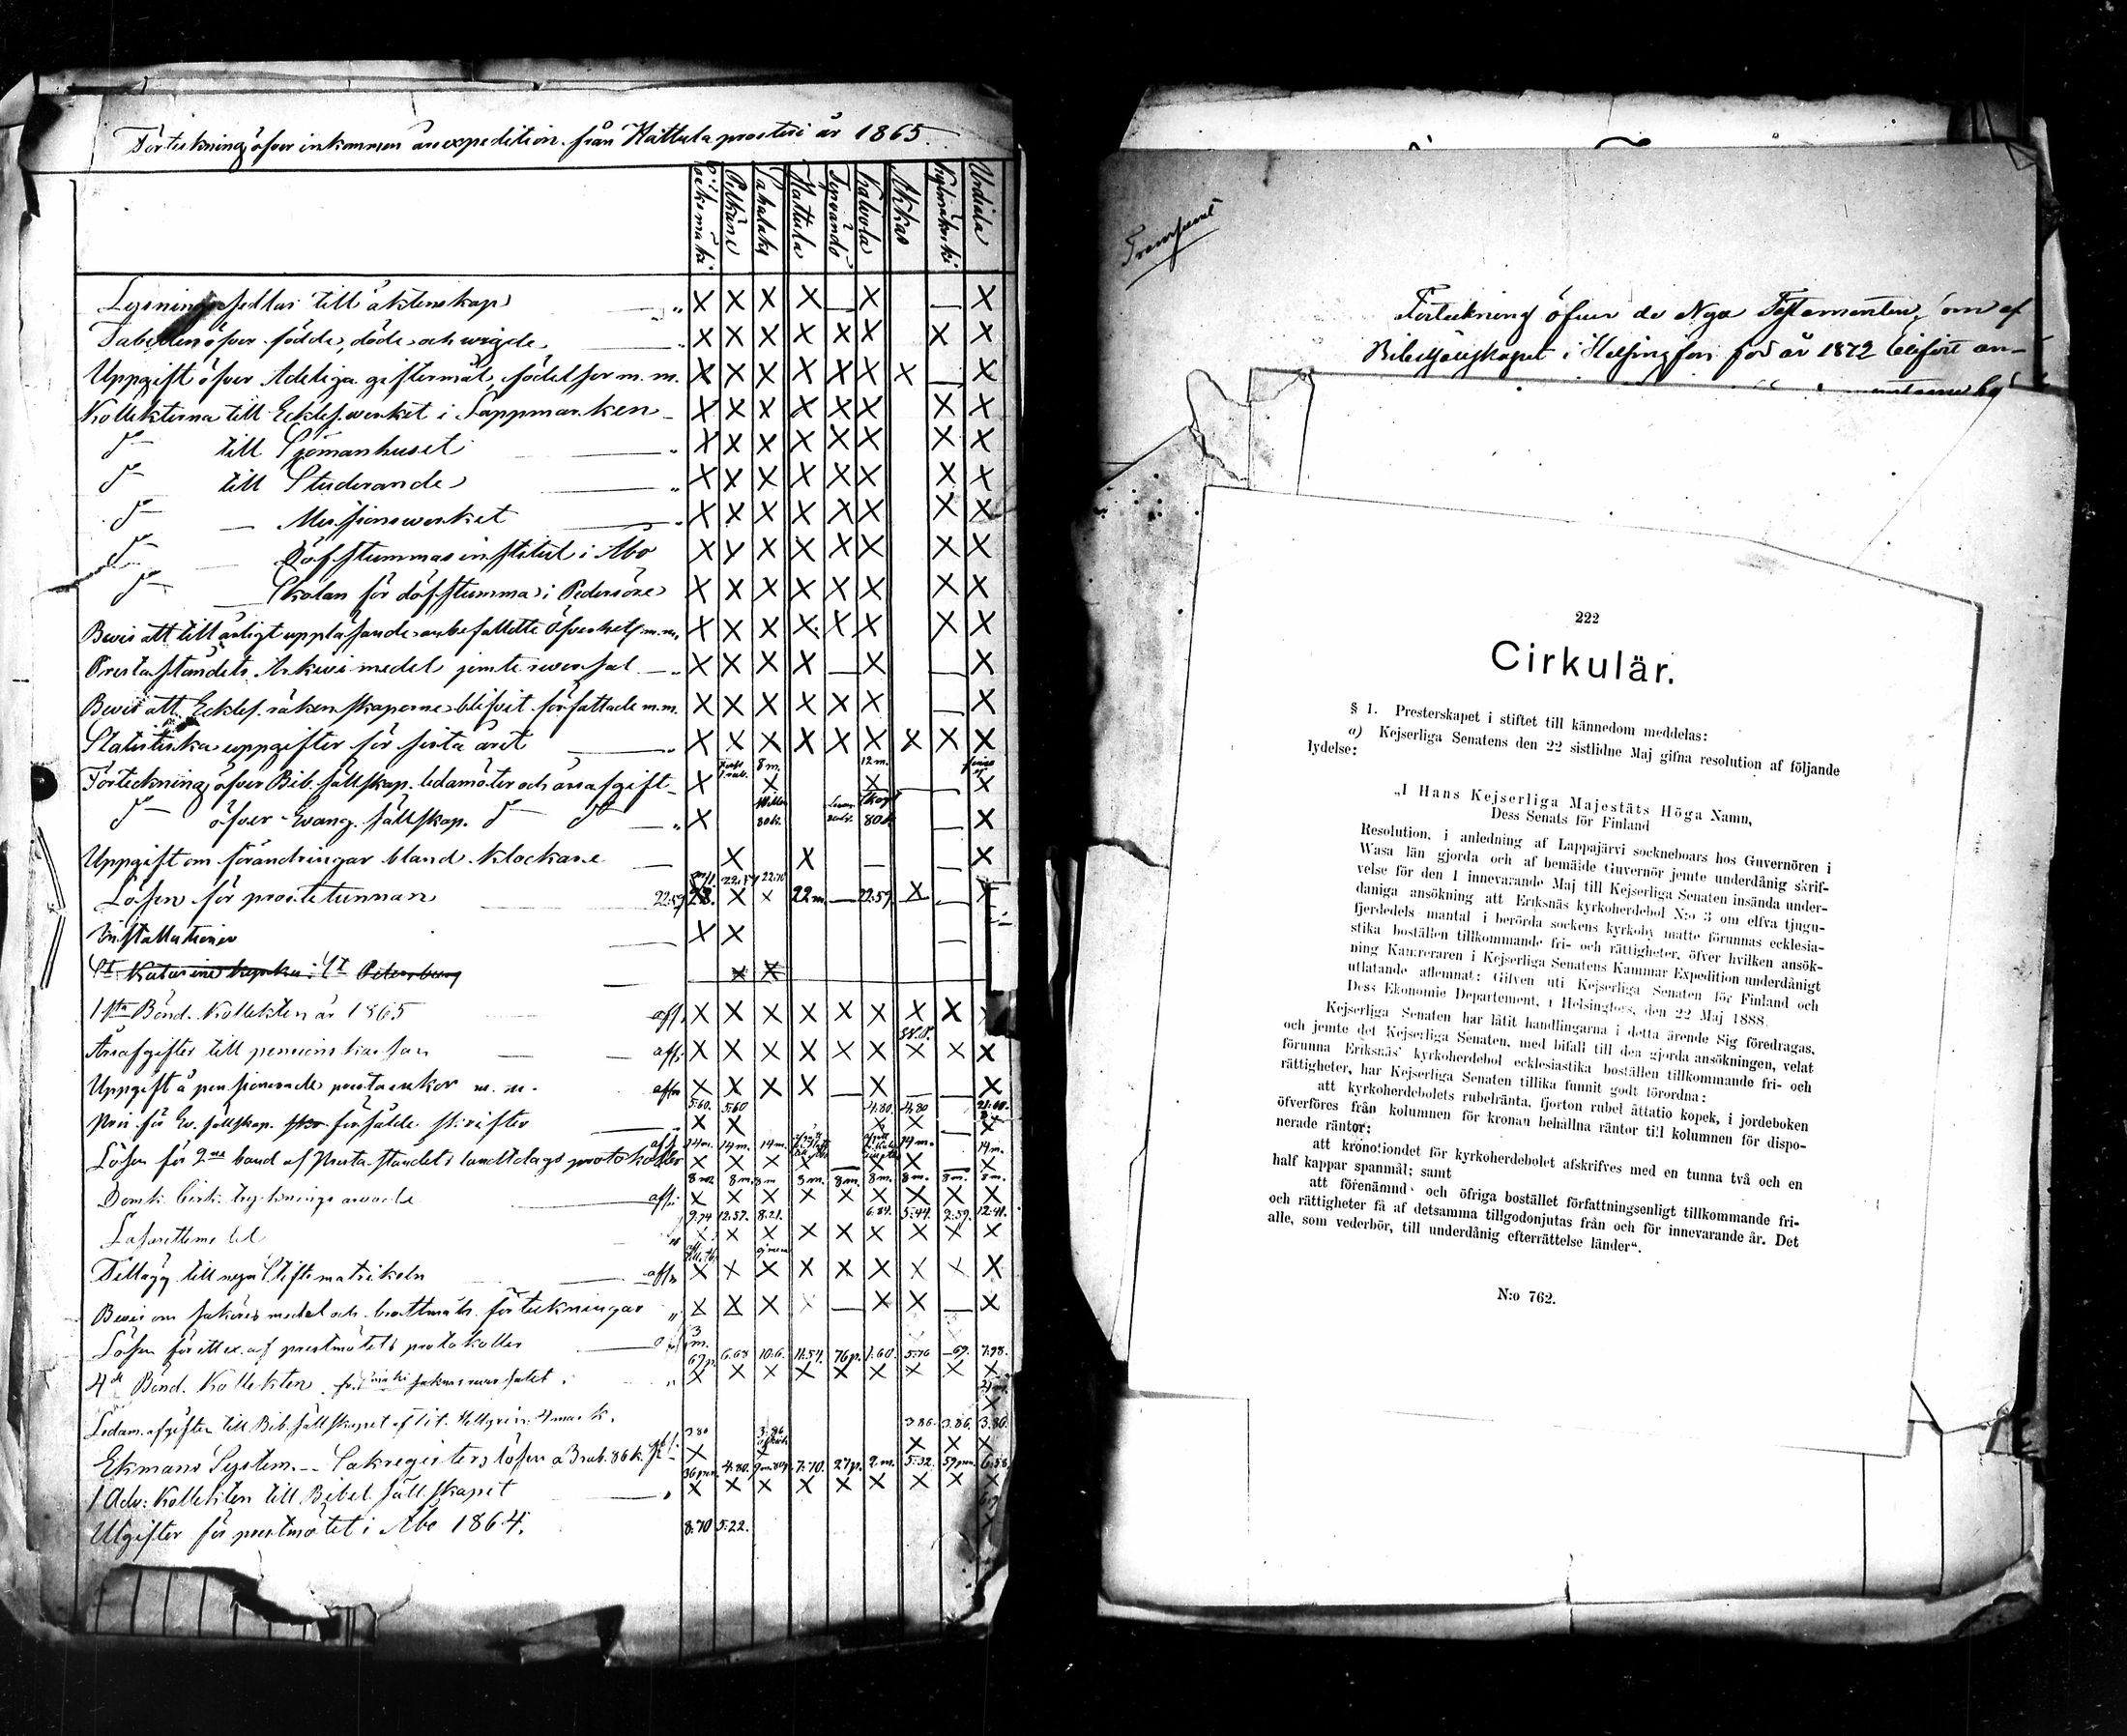 Förteckning öfver inkommen årsexpedition från Hattula prosteri år 1865.
Pelkäne
Sahalaks
Hattula
Tyrvändö
Kalvola
Akkas
Kylmäkoski
Urdiala
Lysningssedlar till äktenskap
Tabellen öfver födde, döde och wigde
Uppgift öfver Adeliga giftermål, födelser m. m.
Kollekterna till Eckles. werket i Lappmarken
till Sjömanhuset
till Studerande
Missionswerket
Döfstummas institut i Åbo
Skolan för döfstumma i Pedersöre
Bewis att till årligt uppläsande anbefallte m.m.
Presteståndets Arkivi medel jemte reversal
Bewis att Eckles. räkenskaperne blifvit författade m.m.
Statistiska uppgifter för sista året
8 m. 12 m.
Förteckning öfver Bib. sällskap. ledamöter och årsafgift
öfver Evang. sällskap.
80 k. 80 k.
Uppgift om förändringar bland klockare
22:59 22:70
Lösen för prostetunnan 22:59 22 m. 22:59
Installationer
St Katarine kyrka i St Petersburg
1sta Bönd. Kollekten år 1865 aff.
Årsafgifter till pensionskassan aff.
Uppgift å pensionerade prestaenkor m. m.
5:60. 5:60 4:80. 4:80 21:60.
Pris för Ev. sällskap. försålde skrifter
14 m. 14 m. 14 m. 14 m. 14 m.
Lösen för 2ne band af Presteståndets landtdags protokoller
8 m. 8 m. 8 m 3 m. 8 m. 8 m. 8 m. 8 m. 8 m.
Domk. cirk. tryknings arvode aff.
9:74 12:57. 8:21. 6:84. 5:44. 2:59. 12:41.
Lasarettsmedel
Tillägg till nya Stiftsmatrikeln
Bewis om sakören medel och brottmåls förteckningar
Lösen för ett ex. af prestmötets protokoller
3 m.
67 p. 6:68 10:6. 11:54. 76 p. 1:60. 5:76 69. 7:98.
4de Bönd. Kollekten
Ledam. afgifter till Bib. sällskapet af tit. Hellgren 4 mark.
3 80 3:86 3 86. 3.86. 3.86.
Ekmans System. Sakregister, lösen a 3 rub. 86 k.
4:80. 7:70. 27 p. 2 m. 5:32. 6:58
1 Adv: Kollekten till Bibel sällskapet
Utgifter för prestmötet i Åbo 1864. 8:70 5:22.
Transsumt
Förteckning öfver de Nya Testamenten, som af
Bibelsällskapet i Helsingfors för år 1872 blifvit an-
222
Cirkulär.
§ 1. Presterskapet i stiftet till kännedom meddelas:
a) Kejserliga Senatens den 22 sistlidne Maj gifna resolution af följande
lydelse:
„I Hans Kejserliga Majestäts Höga Namn,
Dess Senats för Finland
Resolution, i anledning af Lappajärvi sockneboars hos Guvernören i
Wasa län gjorda och af bemälde Guvernör jemte underdånig skrif-
velse för den 1 innevarande Maj till Kejserliga Senaten insända under-
daniga ansökning att Eriksnäs kyrkoherdebol N:o 3 om elfva tjugu-
fjerdedels mantal i berörda sockens kyrkoby matte förunnas ecklesia-
stika boställen tillkommande fri- och rättigheter, öfver hvilken ansök-
ning Kamreraren i Kejserliga Senatens Kammar Expedition underdånigt
utlatande aflemnat: Gifven uti Kejserliga Senaten för Finland och
Dess Ekonomie Departement, i Helsingfors, den 22 Maj 1888.
Kejserliga Senaten har låtit handlingarna i detta ärende Sig föredragas,
och jemte det Kejserliga Senaten, med bifall till den gjorda ansökningen, velat
förunna Eriksnäs' kyrkoherdebol ecklesiastika boställen tillkommande fri- och
rättigheter, har Kejserliga Senaten tillika funnit godt förordna:
att kyrkoherdebolets rubelränta, fjorton rubel åttatio kopek, i jordeboken
öfverföres från kolumnen för kronan behållna räntor till kolumnen för dispo-
nerade räntor;
att kronotiondet för kyrkoherdebolet afskrifves med en tunna två och en
half kappar spanmål; samt
att förenämnd och öfriga bostället författningsenligt tillkommande fri-
och rättigheter få af detsamma tillgodonjutas från och för innevarande år. Det
alle, som vederbör, till underdånig efterrättelse länder“.
N:o 762.